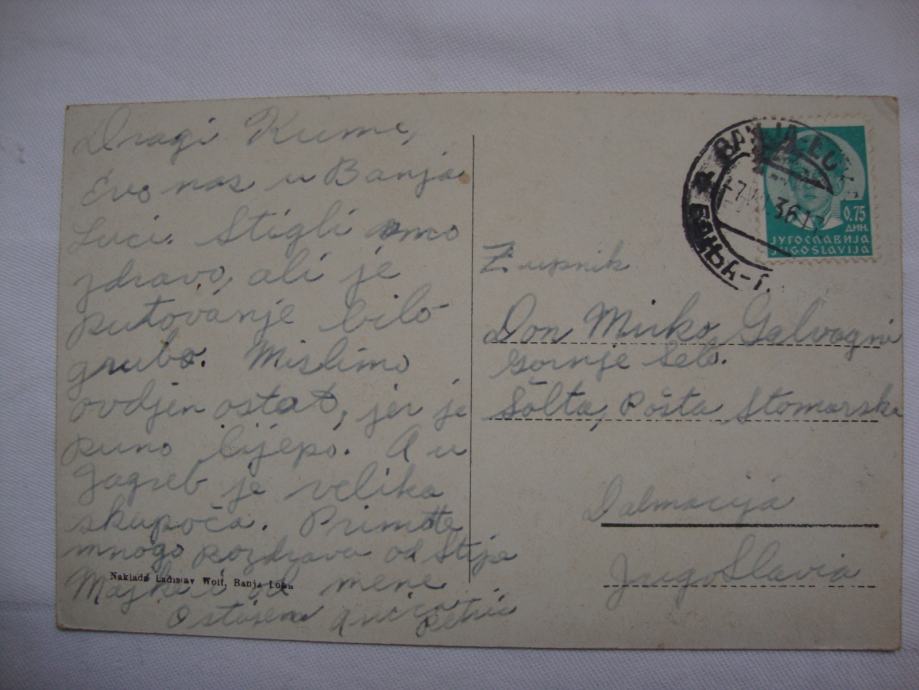 Dragi Kume,
Evo nas u Banja
Luci. Stigli smo
zdravo, ali je
putovanje bilo
grubo. Mislimo
ovdjen ostat, jer je
puno lijepo. A u
Zagreb je velika
skupoča. Primite
mnogo pozdrava od Stipe
Majke i od mene
Ostajem Anića Petrić
Naklada Ladislav Wolf, Banja Luka
BANJA-LUKA
БАЊА-
7 36 13
0.75
ДИН.
ЈУГОСЛАВИЈА
JUGOSLAVIJA
Župnik
Don Mirko Galvagni
Gornje Selo.
Šolta, Pošta Stomorska
Dalmacija
JugoSlavia